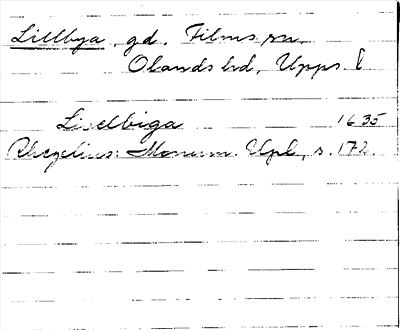 Lillbya, gd. Films sn,
Olands hd, Upps. l
Lirelbiga 1635
Rhezelius: Monum. Upl, s. 172.